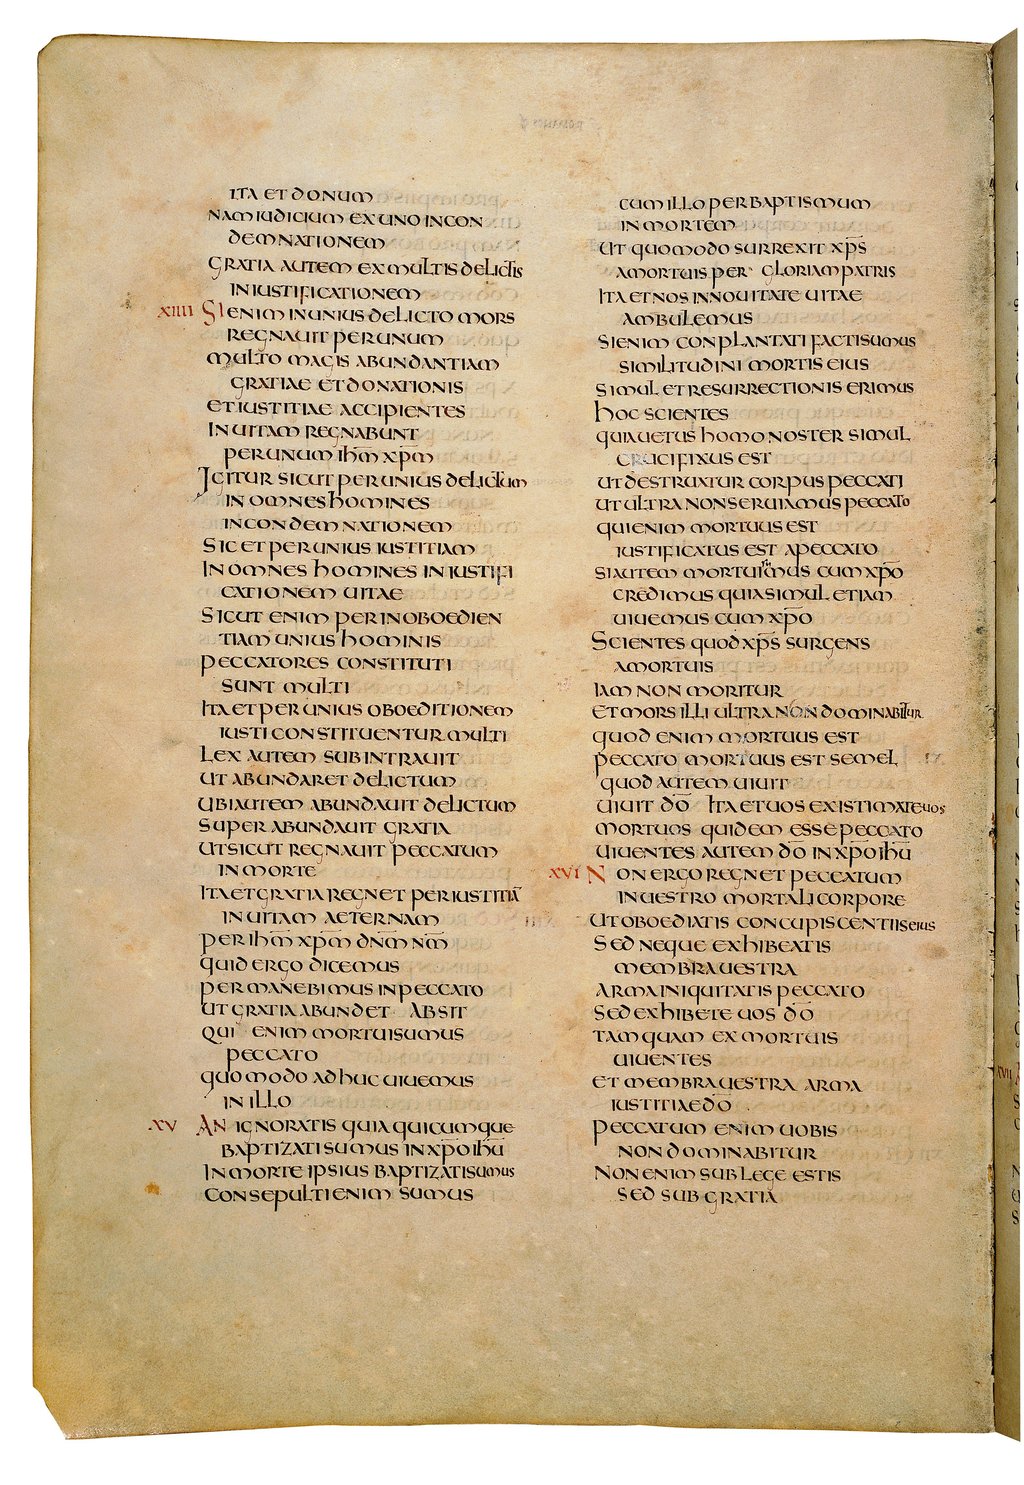 ITA ET DONUM
NAM IUDICIUM EX UNO IN CON
DEMNATIONEM
GRATIA AUTEM EX MULTIS DELICTIS
IN IUSTIFICATIONEM
XIIII SI ENIM IN UNIUS DELICTO MORS
REGNAUIT PER UNUM
MULTO MAGIS ABUNDANTIAM
GRATIAE ET DONATIONIS
ET IUSTITIAE ACCIPIENTES
IN UITAM REGNABUNT
PER UNUM IHM̅ XPM̅
IGITUR SICUT PER UNIUS DELICTUM
IN OMNES HOMINES
IN CONDEMNATIONEM
SIC ET PER UNIUS IUSTITIAM
IN OMNES HOMINES IN IUSTIFI
CATIONEM UITAE
SICUT ENIM PER INOBOEDIEN
TIAM UNIUS HOMINIS
PECCATORES CONSTITUTI
SUNT MULTI
ITA ET PER UNIUS OBOEDITIONEM
IUSTI CONSTITUENTUR MULTI
LEX AUTEM SUBINTRAUIT
UT ABUNDARET DELICTUM
UBI AUTEM ABUNDAUIT DELICTUM
SUPERABUNDAUIT GRATIA
UT SICUT REGNAUIT PECCATUM
IN MORTE
ITA ET GRATIA REGNET PER IUSTITIA̅
IN UITAM AETERNAM
PER IHM̅ XPM̅ DNM̅ NM̅
QUID ERGO DICEMUS
PERMANEBIMUS IN PECCATO
UT GRATIA ABUNDET ABSIT
QUI ENIM MORTUI SUMUS
PECCATO
QUOMODO ADHUC UIUEMUS
IN ILLO
XV AN IGNORATIS QUIA QUICUMQUE
BAPTIZATI SUMUS IN XPO̅ IHU̅
IN MORTE IPSIUS BAPTIZATI SUMUS
CONSEPULTI ENIM SUMUS
CUM ILLO PER BAPTISMUM
IN MORTEM
UT QUOMODO SURREXIT XPS̅
A MORTUIS PER GLORIAM PATRIS
ITA ET NOS IN NOUITATE UITAE
AMBULEMUS
SI ENIM CONPLANTATI FACTI SUMUS
SIMILITUDINI MORTIS EIUS
SIMUL ET RESURRECTIONIS ERIMUS
HOC SCIENTES
QUIA UETUS HOMO NOSTER SIMUL
CRUCIFIXUS EST
UT DESTRUATUR CORPUS PECCATI
UT ULTRA NON SERUIAMUS PECCATO
QUI ENIM MORTUUS EST
IUSTIFICATUS EST A PECCATO
SI AUTEM MORTUI SUMUS CUM XPO̅
CREDIMUS QUIA SIMUL ETIAM
UIUEMUS CUM XPO̅
SCIENTES QUOD XPS̅ SURGENS
A MORTUIS
IAM NON MORITUR
ET MORS ILLI ULTRA NON DOMINABITUR
QUOD ENIM MORTUUS EST
PECCATO MORTUUS EST SEMEL
QUOD AUTEM UIUIT
UIUIT DO̅ ITA ET UOS EXISTIMATE UOS
MORTUOS QUIDEM ESSE PECCATO
UIUENTES AUTEM DO̅ IN XPO̅ IHU̅
XVI NON ERGO REGNET PECCATUM
IN UESTRO MORTALI CORPORE
UT OBOEDIATIS CONCUPISCENTIIS EIUS
SED NEQUE EXHIBEATIS
MEMBRA UESTRA
ARMA INIQUITATIS PECCATO
SED EXHIBETE UOS DO̅
TAMQUAM EX MORTUIS
UIUENTES
ET MEMBRA UESTRA ARMA
IUSTITIAE DO̅
PECCATUM ENIM UOBIS
NON DOMINABITUR
NON ENIM SUB LEGE ESTIS
SED SUB GRATIA